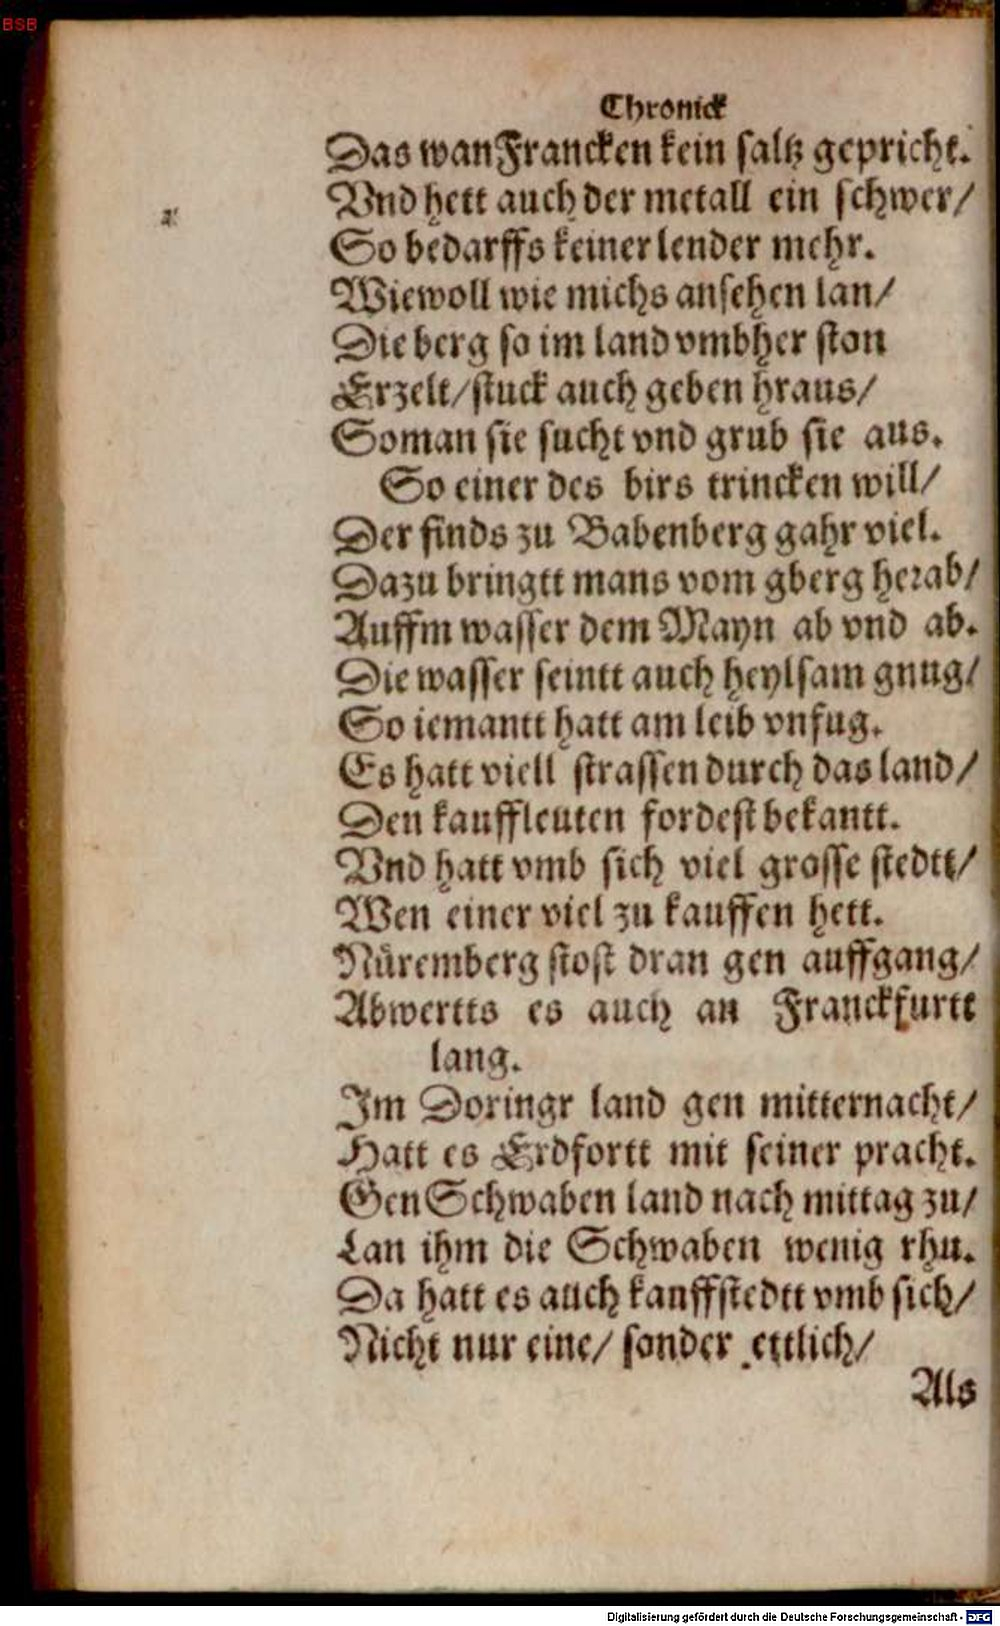 BSB
Chronick
Das wan Francken kein saltz gepricht.
Vnd hett auch der metall ein schwer/
So bedarffs keiner lender mehr.
Wiewoll wie michs ansehen lan/
Die berg so im land vmbher ston
Erzelt/stuck auch geben hraus/
Soman sie sucht vnd grub sie aus.
So einer des birs trincken will/
Der finds zu Babenberg gahr viel.
Dazu bringtt mans vom gberg herab/
Auffm wasser dem Mayn ab vnd ab.
Die wasser seintt auch heylsam gnug/
So iemantt hatt am leib vnfug.
Es hatt viell strassen durch das land/
Den kauffleuten fordest bekantt.
Vnd hatt vmb sich viel grosse stedtt/
Wen einer viel zu kauffen hett.
Nüremberg stost dran gen auffgang/
Abwertts es auch an Franckfurtt
lang.
Im Doringr land gen mitternacht/
Hatt es Erdfortt mit seiner pracht.
Gen Schwaben land nach mittag zu/
Lan ihm die Schwaben wenig rhu.
Da hatt es auch kauffstedtt vmb sich/
Nicht nur eine/ sonder ettlich/
Als
Digitalisierung gefördert durch die Deutsche Forschungsgemeinschaft - DFG